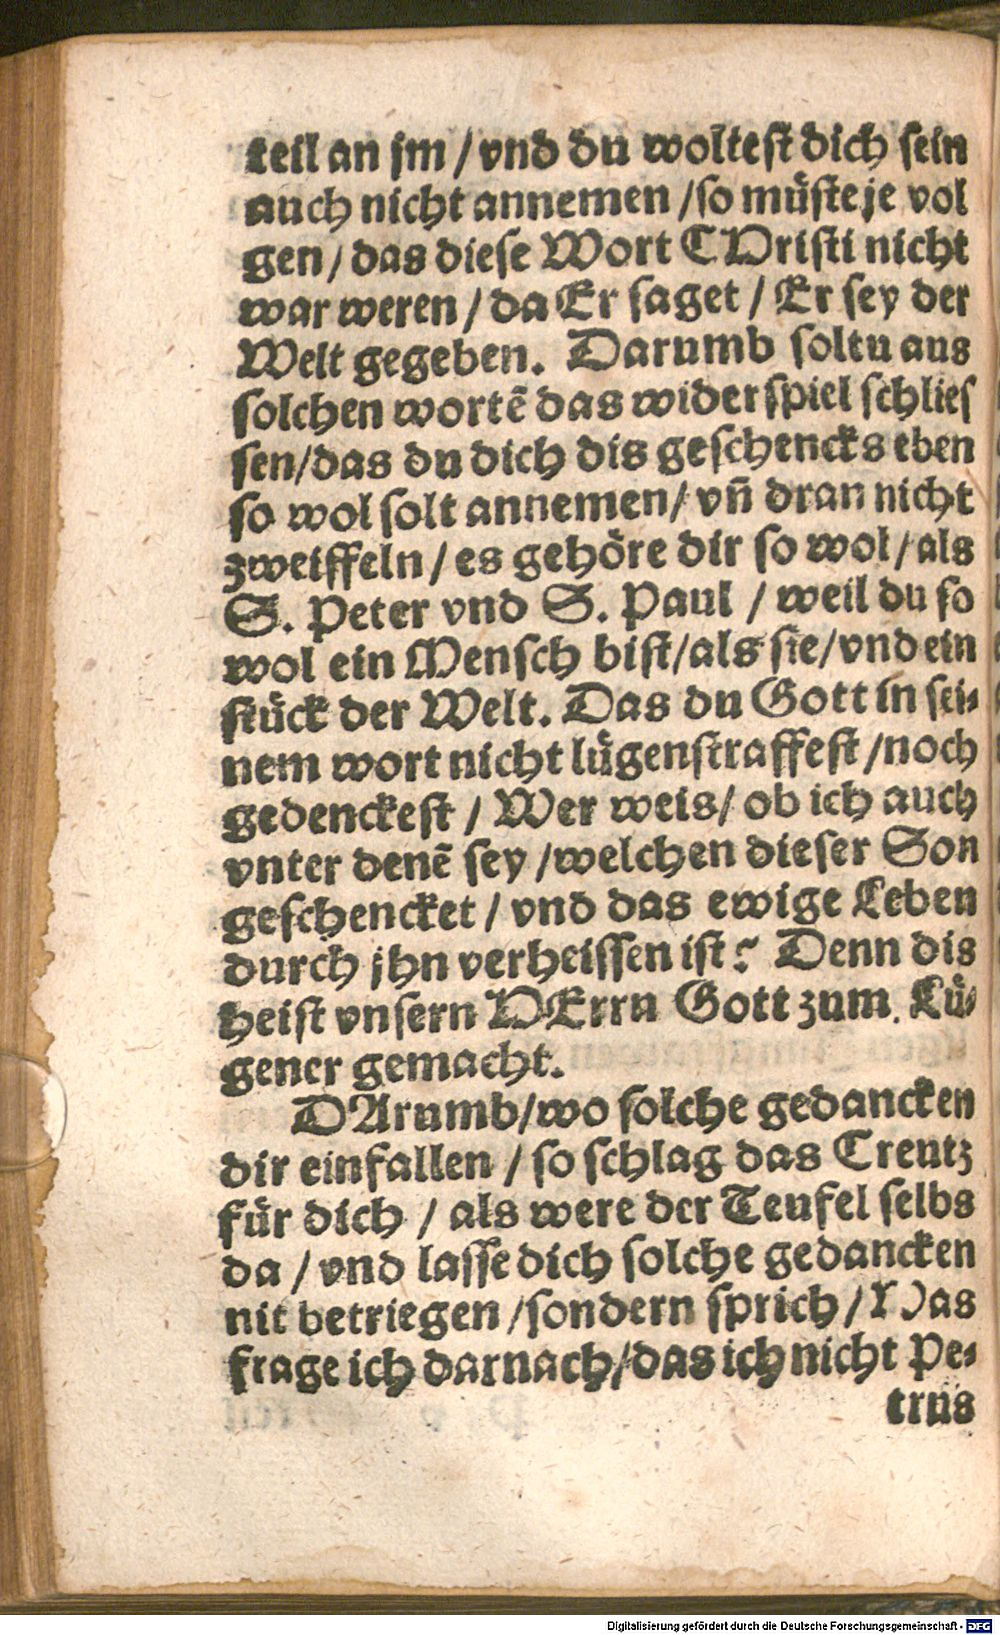 teil an jm / vnd du woltest dich sein
auch nicht annemen / so müste je vol
gen / das diese Wort CHristi nicht
war weren / da Er saget / Er sey der
Welt gegeben. Darumb soltu aus
solchen wortē das widerspiel schlies
sen / das du dich dis geschencks eben
so wol solt annemen / vñ dran nicht
zweiffeln / es gehöre dir so wol / als
S. Peter vnd S. Paul / weil du so
wol ein Mensch bist / als sie / vnd ein
stück der Welt. Das du Gott in sei-
nem wort nicht lügenstraffest / noch
gedenckest / Wer weis / ob ich auch
vnter denē sey / welchen dieser Son
geschencket / vnd das ewige Leben
durch jhn verheissen ist? Denn dis
heist vnsern HErrn Gott zum Lü-
gener gemacht.
DArumb / wo solche gedancken
dir einfallen / so schlag das Creutz
für dich / als were der Teufel selbs
da / vnd lasse dich solche gedancken
nit betriegen / sondern sprich / Was
frage ich darnach / das ich nicht Pe-
trus
Digitalisierung gefördert durch die Deutsche Forschungsgemeinschaft - DFG